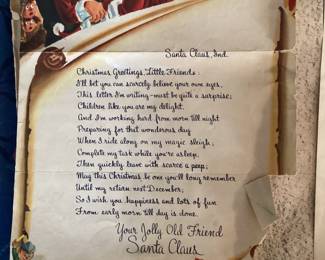 Santa Claus, Ind.
Christmas Greetings, Little Friends:
I'll bet you can scarcely believe your own eyes,
This letter I'm writing-must be quite a surprise;
Children like you are my delight,
And I'm working hard from morn till night
Preparing for that wonderous day
When I ride along on my magic sleigh,
Complete my task while you're asleep,
Then quickly leave with scarce a peep;
May this Christmas be one you'll long remember
Until my return next December;
So I wish you happiness and lots of fun
From early morn till day is done.
Your Jolly Old Friend
Santa Claus